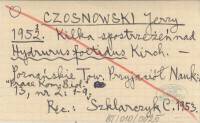 CZOSNOWSKI Jerzy
1952. Kilka spostrzeżeń nad
Hydrurus foetidus Kirch. —
Poznańskie Tow. Przyjaciół Nauk.
Prace Kom. Biol.
13, nr 4: 1-9.
Rec.: Szklarczyk C. 1953.
BT/010/0025